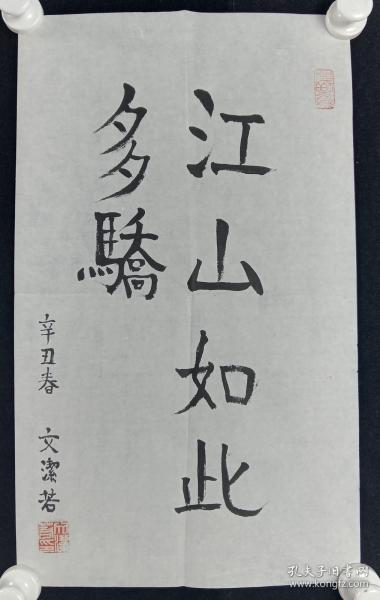 江山如此
多驕
辛丑春 文潔若
孔夫子旧书网